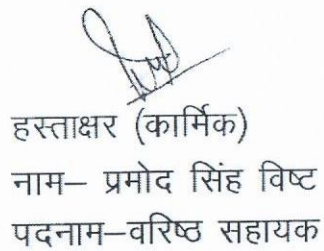 हस्ताक्षर (कार्मिक)
नाम– प्रमोद सिंह विष्ट
पदनाम–वरिष्ठ सहायक